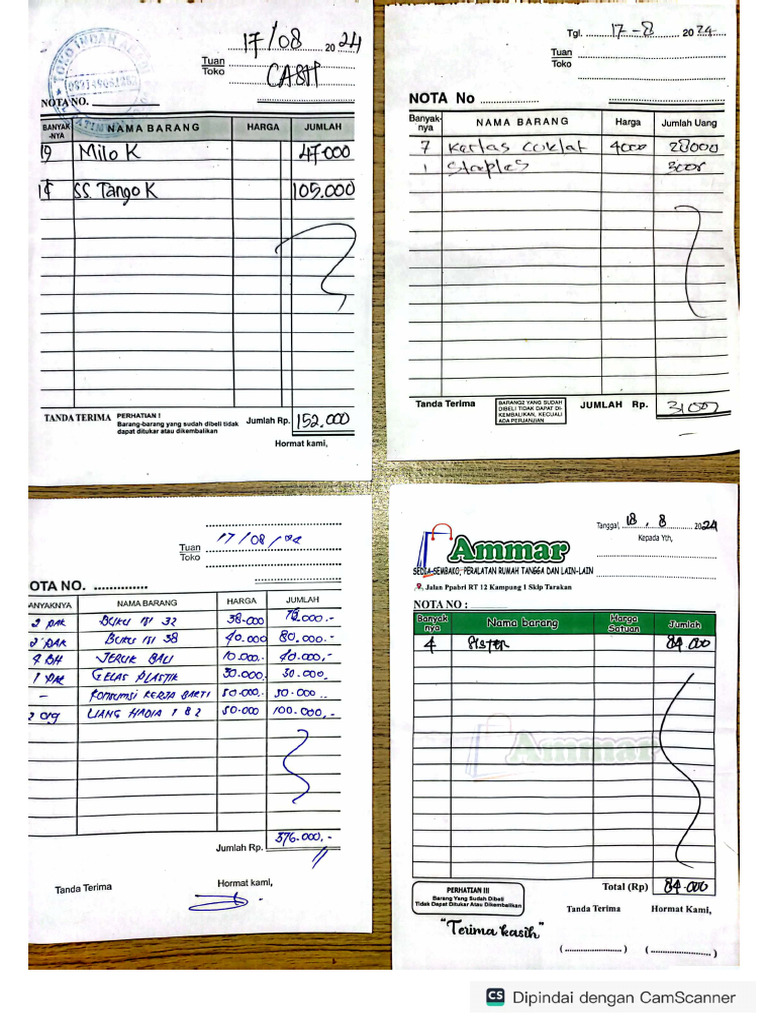 TOKO INDAH
17/08 2024
Tuan
Toko
CASH
NOTA NO.
BANYAK-NYA NAMA BARANG HARGA JUMLAH
19 Milo K 47.000
SS. Tango K 105.000
TANDA TERIMA
PERHATIAN !
Barang-barang yang sudah dibeli tidak
dapat ditukar atau dikembalikan
Jumlah Rp. 152.000
Hormat kami,
Tgl. 17-8 2024
Tuan
Toko
NOTA No
Banyak-nya NAMA BARANG Harga Jumlah Uang
7 Kertas Coklat 4000 28000
1 Staples 3000
Tanda Terima
BARANG2 YANG SUDAH
DIBELI TIDAK DAPAT DI-
KEMBALIKAN, KECUALI
ADA PERJANJIAN
JUMLAH Rp. 31000
17/08/
Tuan
Toko
OTA NO.
ANYAKNYA NAMA BARANG HARGA JUMLAH
2 PAK BUKU ISI 32 38.000 76.000.-
2 PAK BUKU ISI 38 40.000 80.000.-
4 BH JERUK BALI 10.000.- 40.000,-
1 PAK GELAS PLASTIK 30.000, 30.000.
- KONSUMSI KERJA BAKTI 50.000,- 50.000..
2 org UANG HADIA 1 & 2 50.000 100.000,-
Jumlah Rp. 376.000,-
Tanda Terima Hormat kami,
Ammar
SEDIA SEMBAKO, PERALATAN RUMAH TANGGA DAN LAIN-LAIN
Jalan Ppabri RT 12 Kampung 1 Skip Tarakan
Tanggal, 18, 8 2024
Kepada Yth,
NOTA NO :
Banyak nya Nama barang Harga Satuan Jumlah
4 SISTER 84.000
Ammar
Total (Rp) 84.000
PERHATIAN !!!
Barang Yang Sudah Dibeli
Tidak Dapat Ditukar Atau Dikembalikan
Tanda Terima Hormat Kami,
"Terima kasih"
CS Dipindai dengan CamScanner